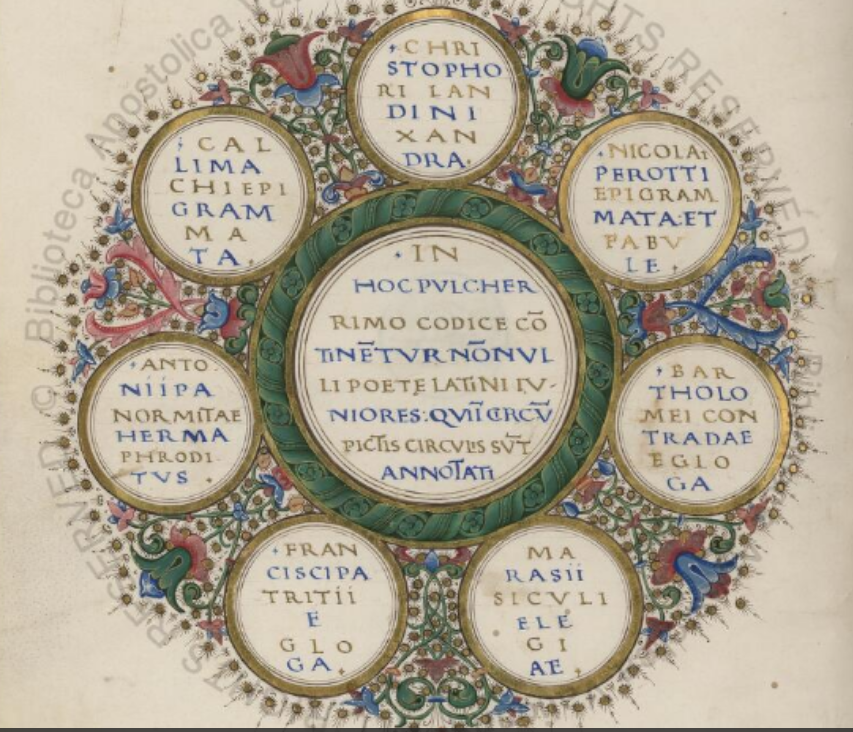 CHRI
STOPHO
RI LAN
DINI
XAN
DRA.
NICOLAI
PEROTTI
EPIGRAM
MATA:ET
FABV
LE
BAR
THOLO
MEI CON
TRADAE
EGLO
GA
MA
RASII
SICVLI
ELE
GI
AE
FRAN
CISCI PA
TRITII
E
GLO
GA
ANTO
NII PA
NORMITAE
HERMA
PHRODI
TVS
CAL
LIMA
CHI EPI
GRAM
MA
TA
IN
HOC PVLCHER
RIMO CODICE CŌ
TINĒTVR NŌNVL
LI POETĘ LATINI IV-
NIORES: QVI Ī CIRCV̄
PICTIS CIRCVLIS SV̄T
ANNOTATI
© Biblioteca Apostolica
RIGHTS RESERVED
RESERVED